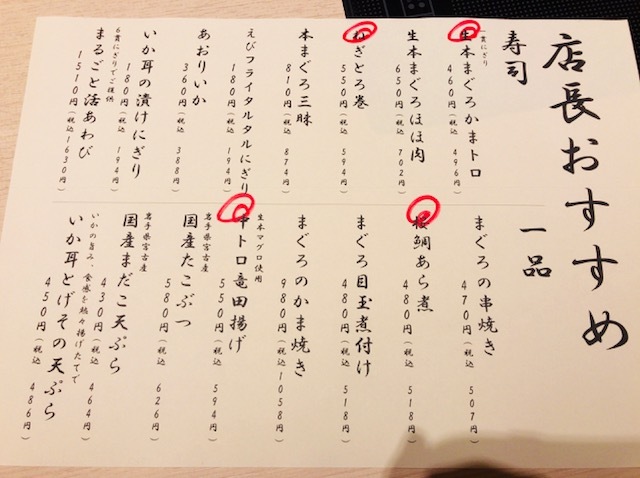 店長おすすめ
寿司
一貫にぎり
生本まぐろかまトロ
460円(税込 496円)
生本まぐろほほ肉
650円(税込 702円)
ねぎとろ巻
550円(税込 594円)
本まぐろ三昧
810円(税込 874円)
えびフライタルタルにぎり
180円(税込 194円)
あおりいか
360円(税込 388円)
いか耳の漬けにぎり
180円(税込 194円)
6貫にぎりでご提供
まるごと活あわび
1510円(税込1630円)
一品
まぐろの串焼き
470円(税込 507円)
桜鯛あら煮
480円(税込 518円)
まぐろ目玉煮付け
480円(税込 518円)
まぐろのかま焼き
980円(税込1058円)
生本マグロ使用
中トロ竜田揚げ
550円(税込 594円)
岩手県宮古産
国産たこぶつ
580円(税込 626円)
岩手県宮古産
国産まだこ天ぷら
430円(税込 464円)
いかの旨み、食感を熱々揚げたてで
いか耳とげその天ぷら
450円(税込 486円)